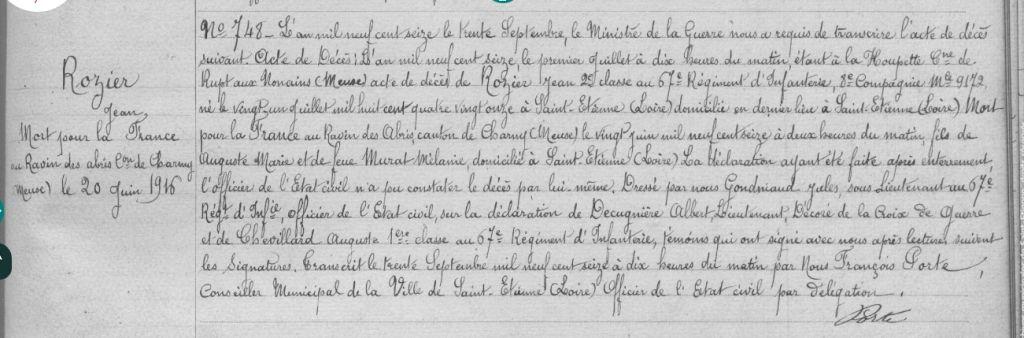 Rozier
Jean
Mort pour la France
au Ravin des abris Con de Charmy
Meuse) le 20 Juin 1916
No 748 - L'an mil neuf cent seize le trente Septembre, le Ministre de la Guerre nous a requis de transcrire l'acte de décès
suivant Acte de Décès. L'an mil neuf cent seize le premier Juillet à dix heures du matin, étant à la Houpette Cne de
Rupt aux Nonains (Meuse) acte de décès de Rozier Jean 2e classe au 67e Régiment d'Infanterie, 8e Compagnie Mle 9172,
né le vingt un Juillet mil huit cent quatre vingt onze à Saint-Etienne (Loire) domicilié en dernier lieu à Saint-Etienne (Loire) Mort
pour la France au Ravin des Abris, canton de Charny (Meuse) le vingt Juin mil neuf cent seize à deux heures du matin, fils de
Auguste Marie et de feue Murat Mélanie, domicilié à Saint-Etienne (Loire) La déclaration ayant été faite après enterrement,
l'officier de l'Etat civil n'a pu constater le décès par lui-même. Dressé par nous Gondniaud Jules, sous Lieutenant au 67e
Régt d'Infie, officier de l'Etat civil, sur la déclaration de Decugnière Albert, Lieutenant, Décoré de la Croix de Guerre
et de Chevillard Auguste 1ère classe au 67e Régiment d'Infanterie, témoins qui ont signé avec nous après lecture, suivent
les Signatures. Transcrit le trente Septembre mil neuf cent seize à dix heures du matin par Nous François Porte,
Conseiller Municipal de la Ville de Saint-Etienne (Loire) Officier de l'Etat civil par délégation.
Porte